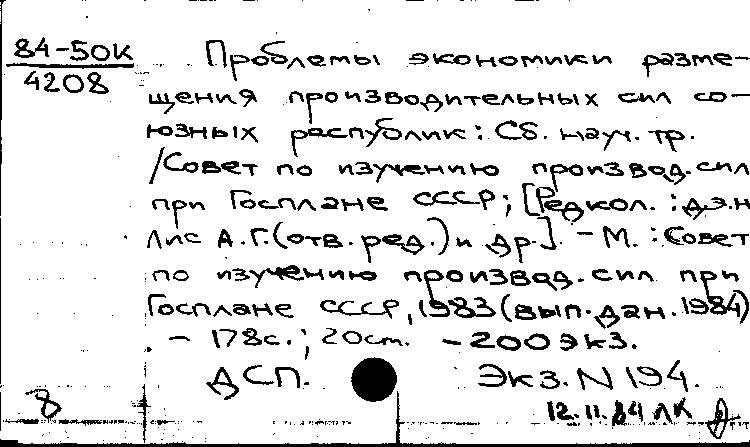 84-50к
4208
Проблемы экономики разме-
щения производительных сил со-
юзных республик: Сб. науч. тр.
/Совет по изучению производ. сил
при Госплане СССР; [Редкол.: д.э.н
Лис А.Г. (отв. ред.) и др.]. - М.: Совет
по изучению производ. сил при
Госплане СССР, 1983 (вып. дан. 1984)
- 178с.; 20см. - 200 экз.
ДСП. Экз. N 194.
8
12.11.84 ЛК